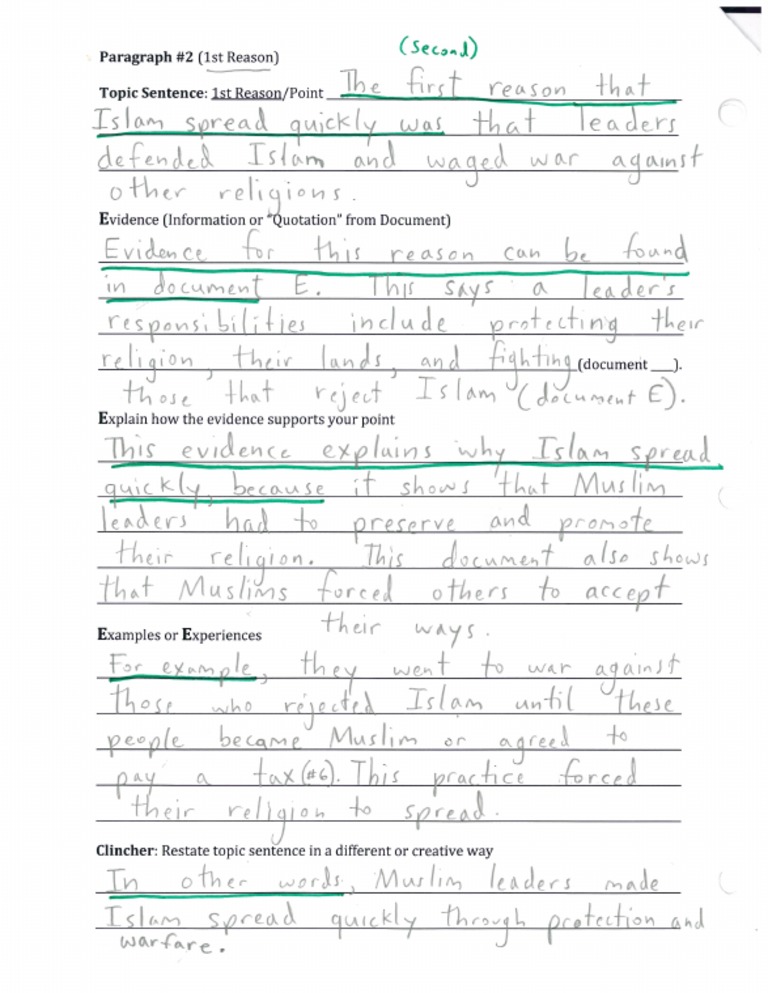 (second)
Paragraph #2 (1st Reason)
Topic Sentence: 1st Reason/Point The first reason that
Islam spread quickly was that leaders
defended Islam and waged war against
other religions.
Evidence (Information or "Quotation" from Document)
Evidence for this reason can be found
in document E. This says a leader's
responsibilities include protecting their
religion, their lands, and fighting (document ___).
those that reject Islam (document E).
Explain how the evidence supports your point
This evidence explains why Islam spread
quickly, because it shows that Muslim
leaders had to preserve and promote
their religion. This document also shows
that Muslims forced others to accept
their ways.
Examples or Experiences
For example, they went to war against
those who rejected Islam until these
people became Muslim or agreed to
pay a tax (#6). This practice forced
their religion to spread.
Clincher: Restate topic sentence in a different or creative way
In other words, Muslim leaders made
Islam spread quickly through protection and
warfare.